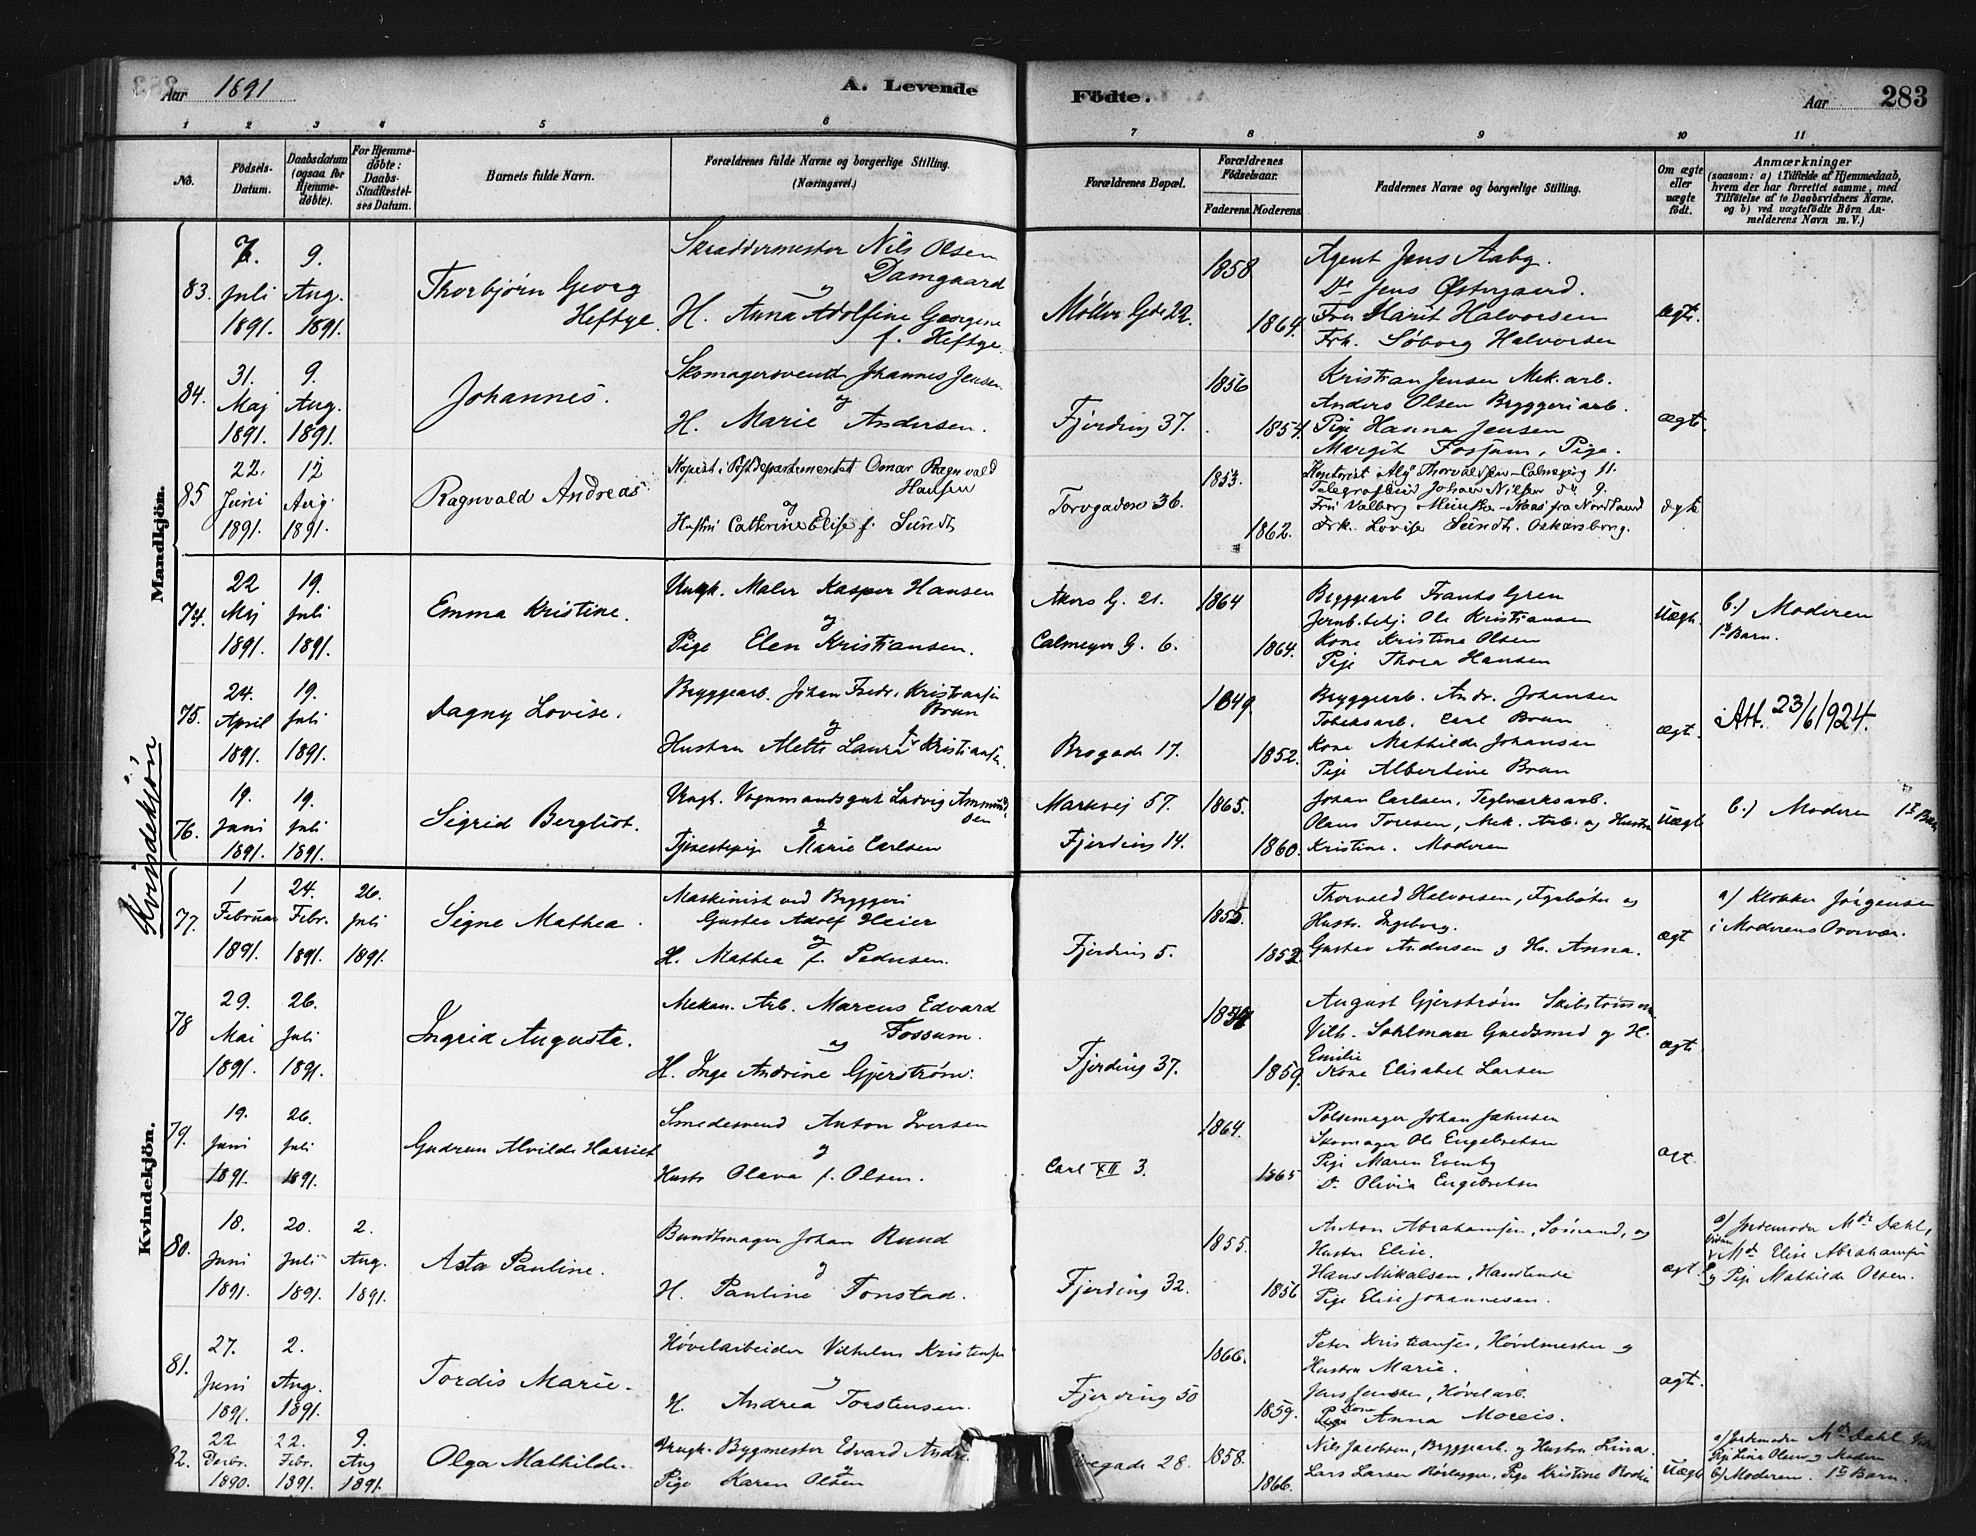 Aar 1891
A. Levende Födte.
Aar 283
1 2 3 4 5 6 7 8 9 10 11
No.
Födsels-Datum.
Daabsdatum (ogsaa for Hjemme-döbte).
For Hjemme-döbte: Daabs-Stadfæstel-ses Datum.
Barnets fulde Navn.
Forældrenes fulde Navne og borgerlige Stilling. (Næringsvei.)
Forældrenes Bopæl.
Forældrenes Födselsaar.
Faderens. Moderens.
Faddernes Navne og borgerlige Stilling.
Om ægte eller uægte födt.
Anmærkninger
(saasom: a) i Tilfælde af Hjemmedaab, hvem der har forrettet samme, med Tilföielse af to Daabsvidners Navne, og b) ved uægtefödte Börn An-melderens Navn m. V.)
Mandkjön.
83. 7. Juli 1891. 9. Aug. 1891.
Thorbjørn Georg Heftye
Skræddermester Nils Olsen Damgaard
og
H. Anna Adolfine Georgene f. Heftye.
Møller Gd. 22.
1858 1864.
Agent Jens Aaby.
Do Jens Østergaard.
Fru Marit Halvorsen
Frk. Søborg Halvorsen
ægte.
84. 31. Maj 1891. 9. Aug. 1891.
Johannes.
Skomagersvend Johannes Jensen
og
H. Marie Andersen.
Fjerding 37.
1856 1854.
Kristian Jensen Mek. arb.
Anders Olsen Bryggeriarb.
Pige Hanna Jensen
Margit Fossum, Pige.
ægte.
85 22. Juni 1891. 12 Aug. 1891.
Ragnvald Andreas
Kopist i Postdepartementet Omar Ragnvald Hansen
og
Hustru Cathrine Elise f. Sundt
Torvgaden 36.
1853. 1862.
Kontorist Thorvaldsen Calmeyerg 11.
Johan Nilsen do 9.
Fru Valborg
Frk. Lovise Sundt. Oskarsborg.
ægte
Kvindekjön
74. 22 Maj 1891. 19. Juli 1891.
Emma Kristine.
Ungk. Maler Kasper Hansen
og
Pige Elen Kristiansen.
Akers G. 21.
Calmeyer G. 6.
1864 1864.
Bryggearb Frants Gren
Jernb. betj. Ole Kristiansen
Kone Kristine Olsen
Pige Thora Hansen
Uægte.
b.) Moderen
1ste Barn.
75. 24. April 1891. 19. Juli 1891.
Dagny Lovise.
Bryggearb. Johan Fredr. Kristiansen Brun
og
Hustru Mette Laura f. Kristiansen.
Brogade 17.
1849. 1852.
Bryggerarb. Andr. Johansen
Tobaksarb. Carl Brun
Kone Mathilde Johansen
Pige Albertine Brun
ægt.
Att. 23/6/924.
76. 19. Juni 1891. 19. Juli 1891.
Sigrid Bergliot.
Ungk. Vognmandsgut Ludvig Ammundsen
og
Tjenestepige Marie Carlsen
Markvej 57.
Fjerding 14.
1865. 1860.
Johan Carlsen, Teglværksarb.
Olaus Toresen, Mek. Arb. og Hustru
Kristine. Moderen
Uægte
b.) Moderen 1ste Barn
77. 1 Februar 1891. 24. Febr. 1891. 26. Juli 1891.
Signe Mathea.
Maskinist ved Bryggeri
Gustav Adolf Heier
og
H. Mathea f. Pedersen.
Fjerding 5.
1855. 1852.
Thorvald Halvorsen, Fyrbøter og
Hustr. Ingeborg.
Gustav Andersen og H. Anna.
ægt
a/ Klokker Jørgensen
i Moderens Overvær.
Kvindekjön.
78 29. Mai 1891. 26. Juli 1891.
Ingrid Augusta.
Mekan. Arb. Marcus Edvard Fossum.
og
H. Inga Andrine Gjerstrøm.
Fjerding 37.
1854 1859.
August Gjerstrøm Skibstømmerm.
Vilh. Sahlman Guldsmed og H.
Emilie
Kone Elisabet Larsen
ægte.
79. 19. Juni 1891. 26. Juli 1891.
Gudrun Alvilde Harriet
Smedesvend Anton Iversen
og
Hustr. Olava f. Olsen.
Carl XII 3.
1864. 1865
Pølsemager Johan Jahnsen
Skomager Ole Engebretsen
Pige Maren Evenby
Do. Olivia Engebretsen
ægt.
80. 18. Juni 1891. 20. Juli 1891. 2. Aug. 1891.
Asta Pauline.
Bundtmager Johan Rund
og
H. Pauline Tonstad.
Fjerding 32.
1855. 1856
Anton Abrahamsen, Sømand, og
Hustru Elise.
Hans Mikalsen, Handlende
Pige Elise Johannesen.
ægt.
a/ Jordemoder Md. Dahl,
Vidner Md Elise Abrahamsen
og Pige Mathilde Olsen.
81. 27. Juni 1891. 2. Aug. 1891.
Tordis Marie.
Høvelarbeider Vilhelm Kristensen
og
H. Andrea Torstensen.
Fjerding 50
1866. 1859.
Peter Kristiansen, Høvelmester og
Hustru Marie.
Jens Jensen, Høvelarb.
Kone Anna Moreis.
ægte.
82. 22 Decbr. 1890. 22. Febr. 1891. 9. Aug 1891.
Olga Mathilde.
Ungk. Bygmester Edvard Andr.
og
Pige Karen Olsen
gade 28.
1858. 1866.
Nils Jacobsen, Bryggearb. og Hustru Lina.
Lars Larsen Rørlegger, Pige Kristine
Uægte
a/ Jordemoder Md Dahl
Pige Lina Olsen og Moderen
b/ Moderen. 1ste Barn.